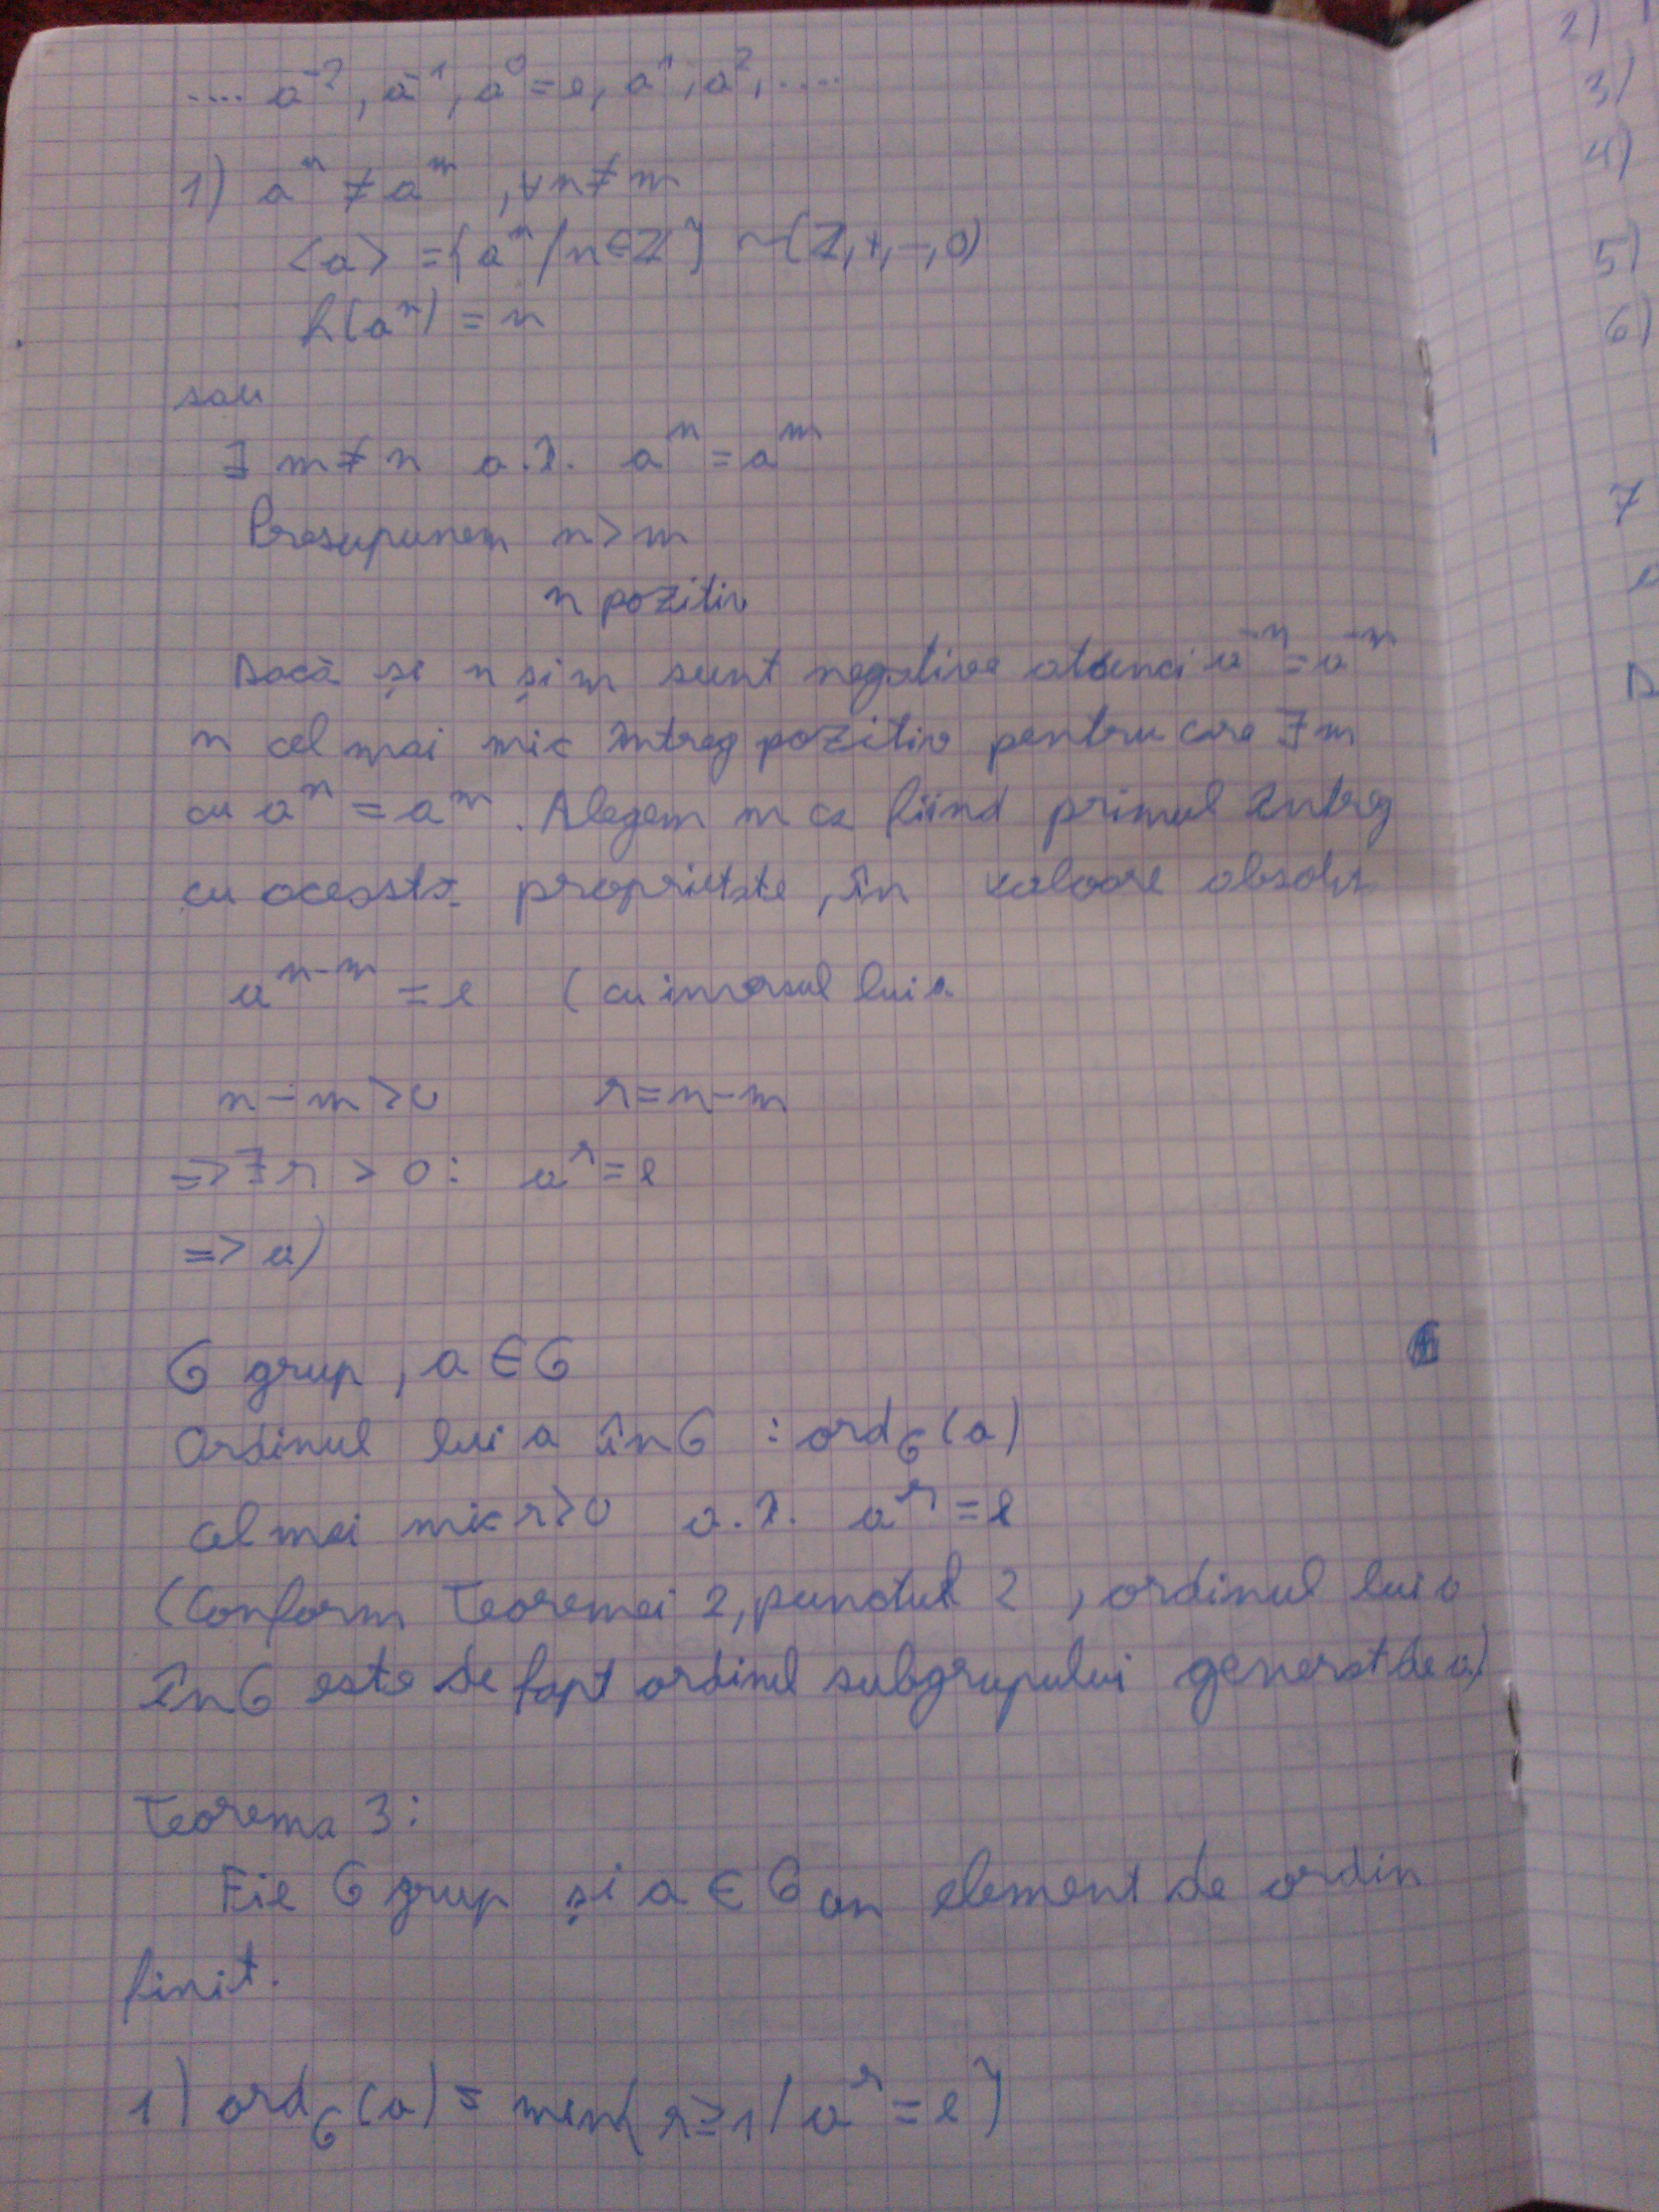 .... a⁻², a⁻¹, a⁰ = e, a¹, a², ....
1) aⁿ ≠ aᵐ , ∀ n ≠ m
<a> = {aⁿ / n ∈ ℤ} ~ (ℤ, +, -, 0)
h(aⁿ) = n
sau
∃ m ≠ n a.î. aⁿ = aᵐ
Presupunem n > m
n pozitiv
Dacă și n și m sunt negative atunci a⁻ⁿ = a⁻ᵐ
n cel mai mic întreg pozitiv pentru care ∃ m
cu aⁿ = aᵐ. Alegem m ca fiind primul întreg
cu această proprietate, în valoare absolut
aⁿ⁻ᵐ = e (cu inversul lui a
n - m > 0 r = n - m
=> ∃ r > 0 : aʳ = e
=> a)
G grup, a ∈ G
Ordinul lui a în G : ord_G(a)
cel mai mic r > 0 a.î. aʳ = e
(Conform Teoremei 2, punctul 2, ordinul lui a
în G este de fapt ordinul subgrupului generat de a)
Teorema 3:
Fie G grup și a ∈ G un element de ordin
finit.
1) ord_G(a) = min{r ≥ 1 / aʳ = e}
2)
3)
4)
5)
6)
7